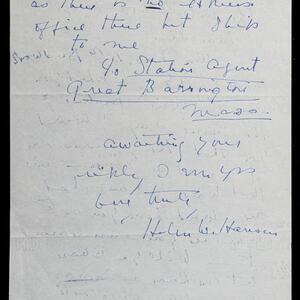 as there is no express
office there but ship
to me
c/o Station Agent
Great Barrington
Mass.
awaiting your
reply I am yrs
truly
Helen W. Hansen